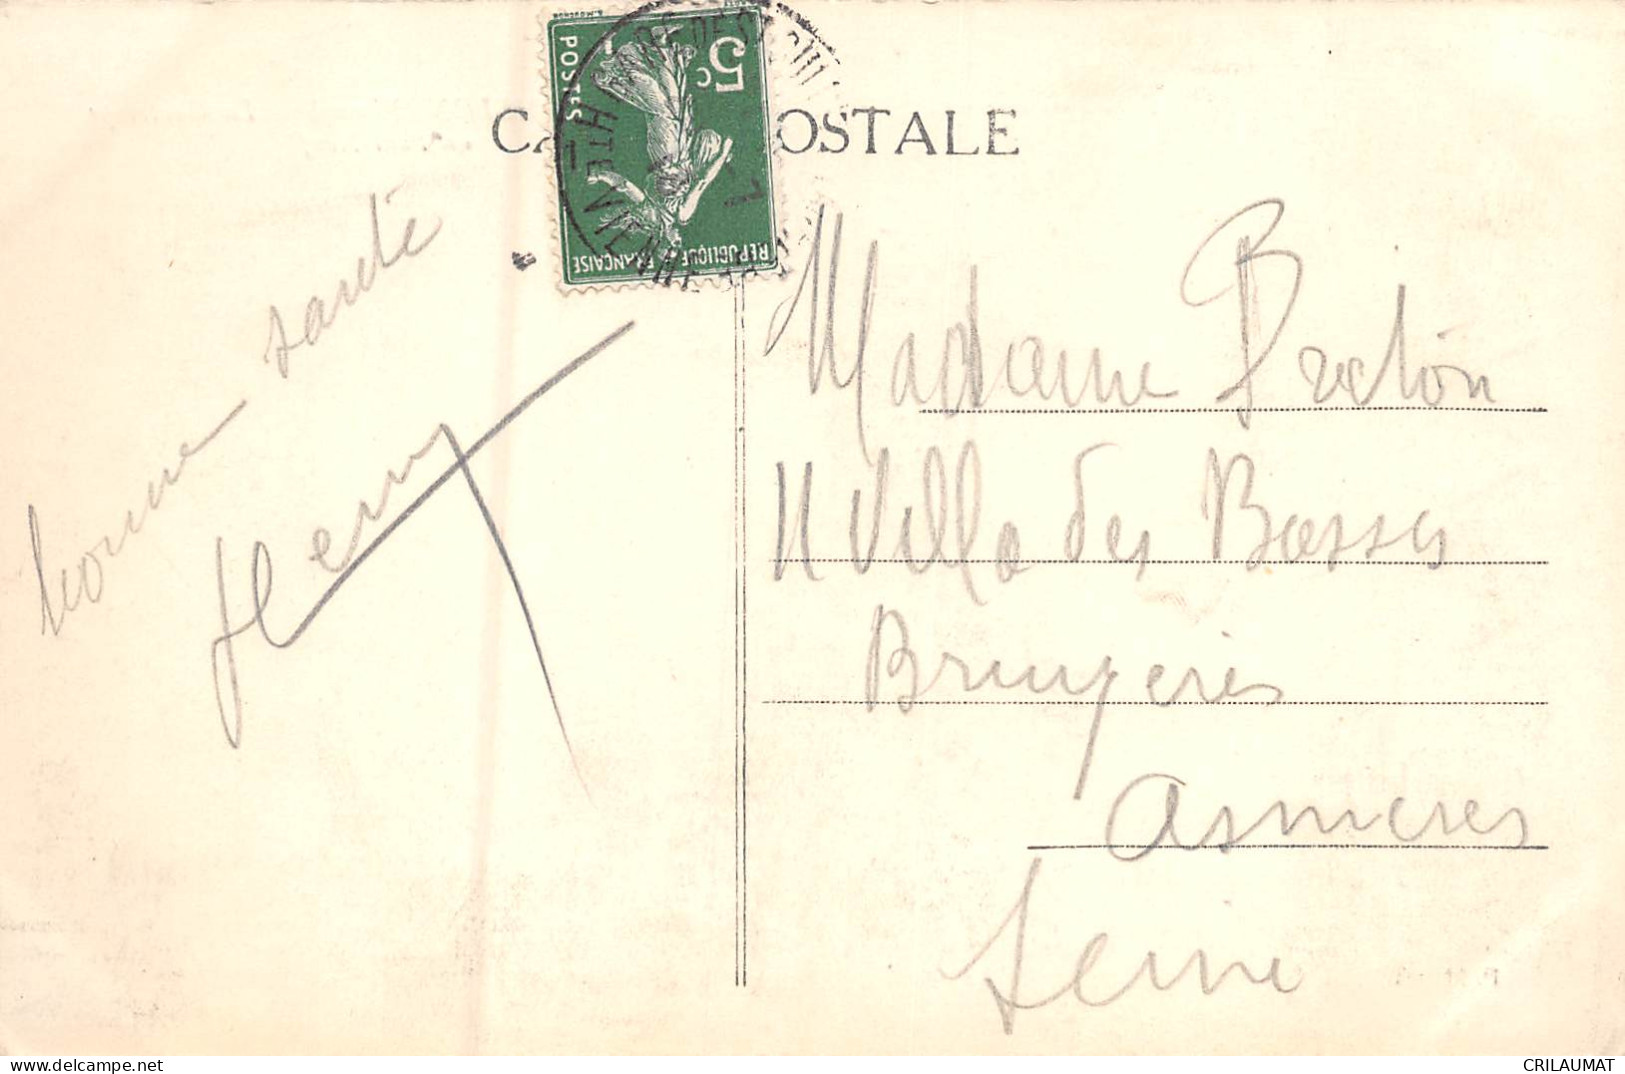 CA OSTALE
5c
POSTES
REPUBLIQUE FRANÇAISE
HTE VIENNE
bonne santé
Henry
Madame Breton
11 Villa des Basses
Bruyeres
Asnieres
Seine
CRILAUMAT